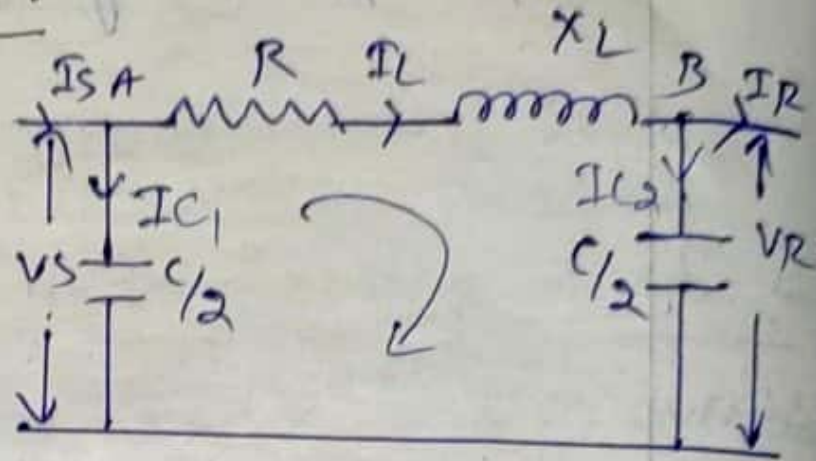 IS A R IL XL B IR
IC1 IC2
VS C/2 C/2 VR